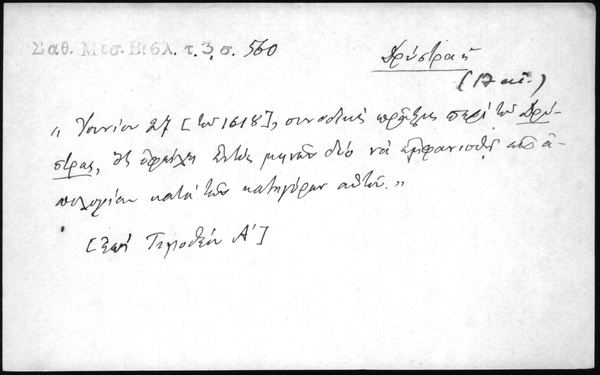 Σαθ. Μεσ. Βιβλ. τ. 3, σ. 560
Δρύστρας
(17 αἰ.)
« Ἰουνίου 27 [τοῦ 1618], συνοδικὴ πρᾶξις περὶ τοῦ Δρύ-
στρας, ὃς ὀφείλει ἐντὸς μηνῶν δύο νὰ ἐμφανισθῇ πρὸς ἀ-
πολογίαν κατὰ τῶν κατηγόρων αὐτοῦ. »
[ἐπὶ Τιμοθέου Α']